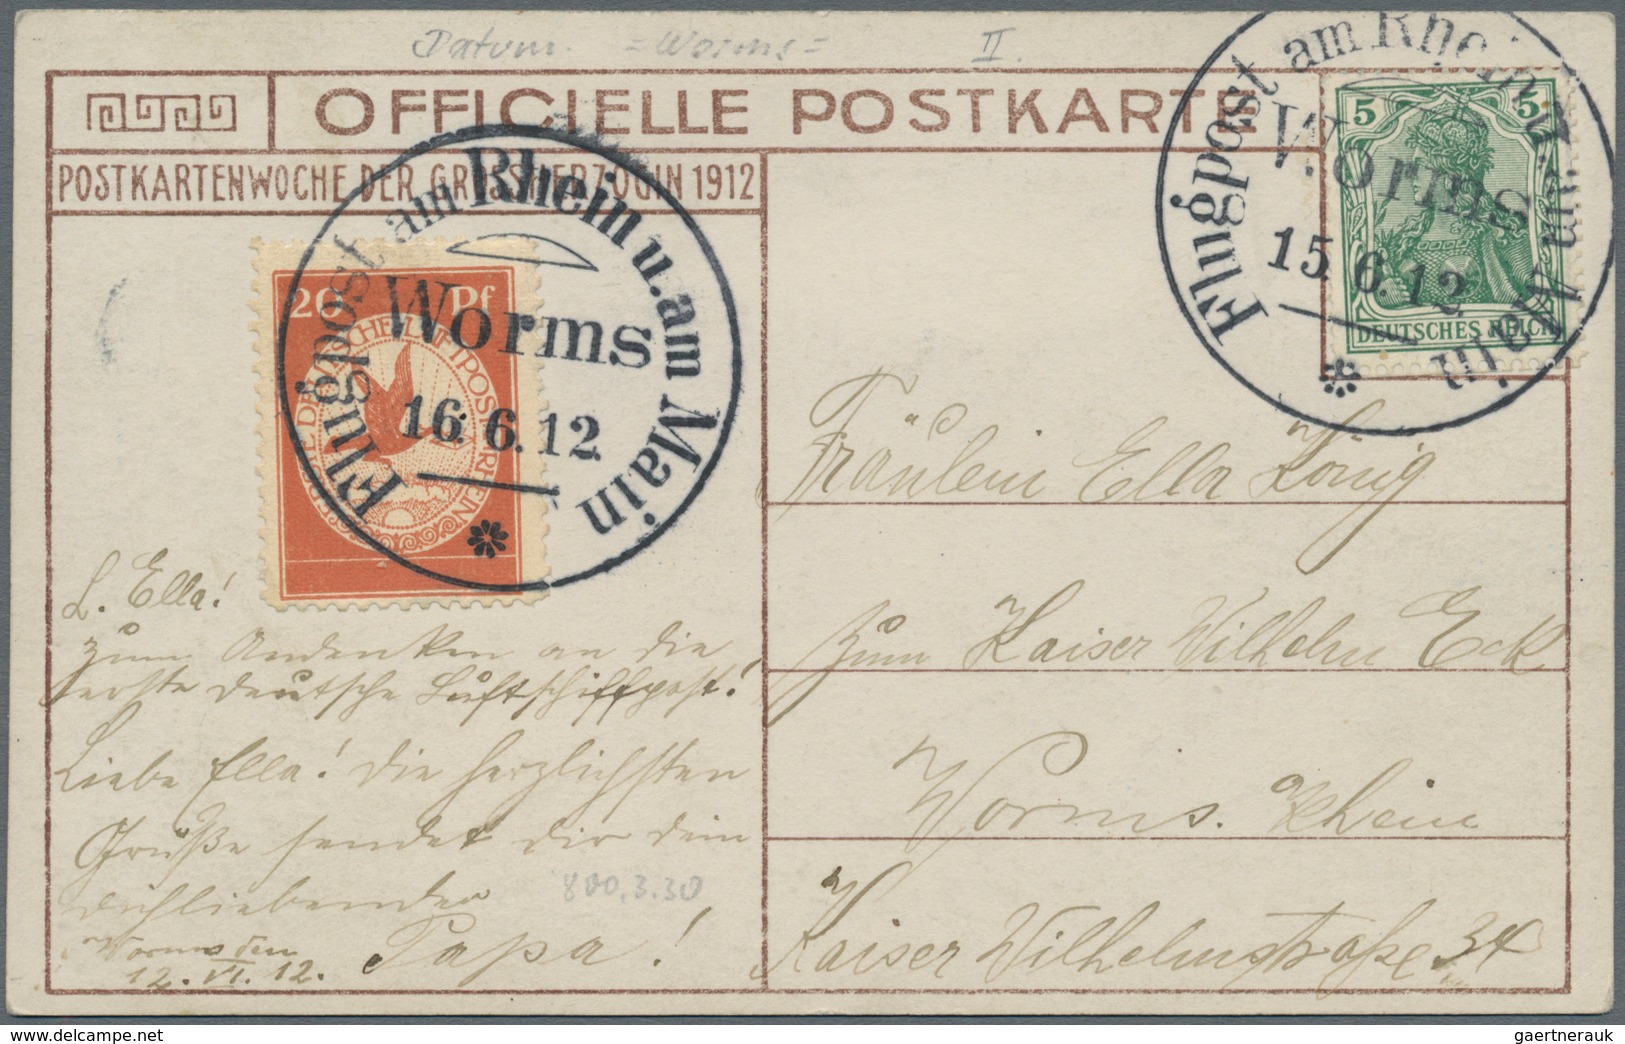 Datum. =Worms= II.
OFFICIELLE POSTKARTE
POSTKARTENWOCHE DER GROSSHERZOGIN 1912
Flugpost am Rhein u. am Main
Worms
15.6.12
5 5
DEUTSCHES REICH
Flugpost am Rhein u. am Main
Worms
16.6.12.
20 Pf
L. Ella!
zum Andenken an die
erste deutsche Luftschiffpost!
Liebe Ella! die herzlichsten
Grüße sendet dir dein
dichliebender
Papa!
Worms den
12.VI.12.
800.3.30
Fräulein Ella König
zum Kaiser Wilhelm Eck
Worms. Rhein
Kaiser Wilhelmstraße 34
gaertnerauk